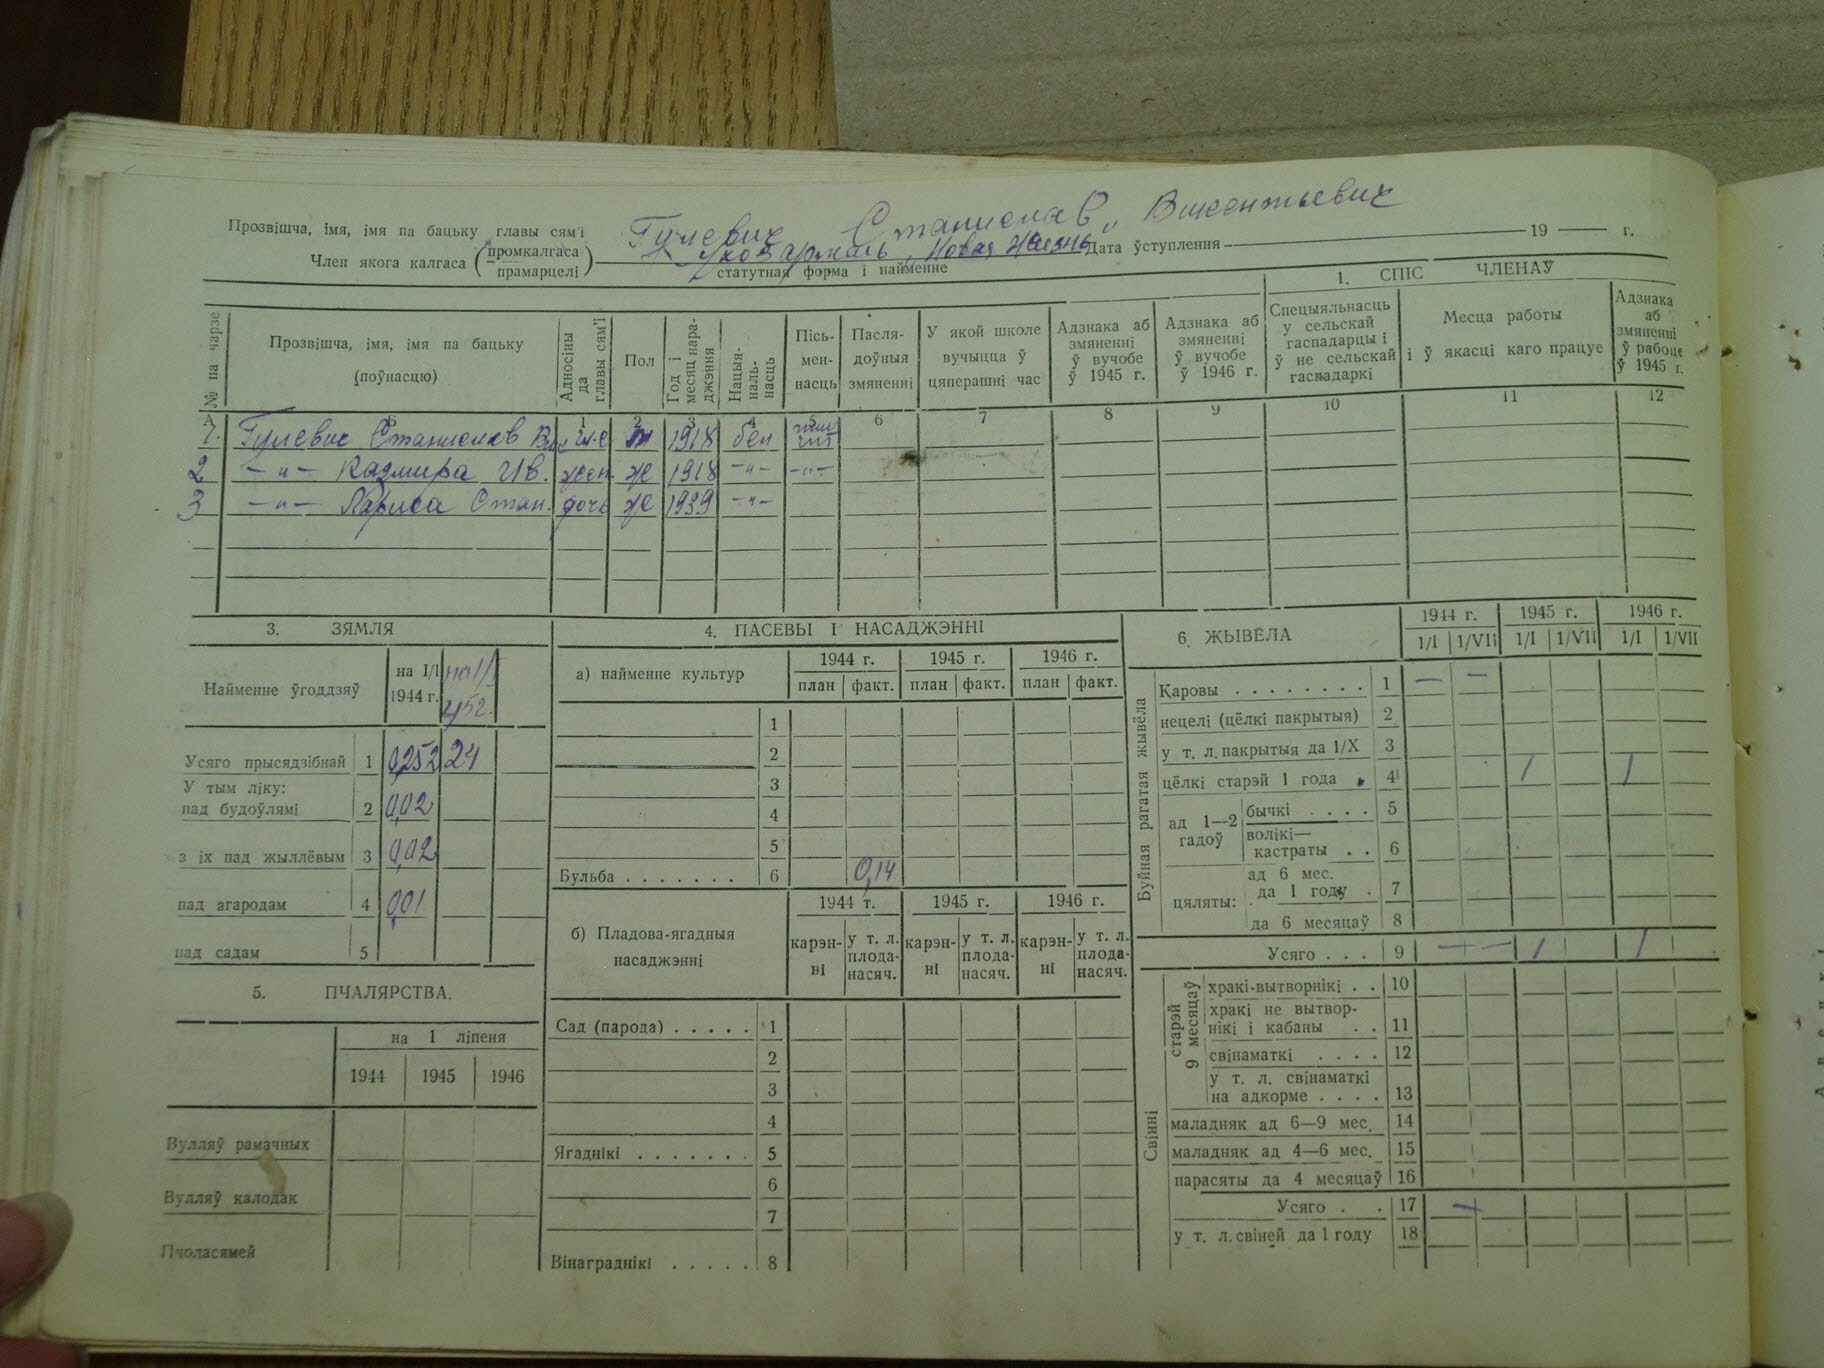 Прозвішча, імя, імя па бацьку главы сям'і Гулевич Станислав Викентьевич
Член якога калгаса (промкалгаса прамарцелі) "Новая Жизнь" Дата ўступлення 19 г.
статутная форма і найменне
1. СПІС ЧЛЕНАЎ
№ па чарзе
Прозвішча, імя, імя па бацьку (поўнасцю)
Адносіны да главы сям'і
Пол
Год і месяц нараджэння
Нацыянальнасць
Пісьменнасць
Паслядоўныя змяненні
У якой школе вучыцца ў цяперашні час
Адзнака аб змяненні ў вучобе ў 1945 г.
Адзнака аб змяненні ў вучобе ў 1946 г.
Спецыяльнасць у сельскай гаспадарцы і ў не сельскай гаспадаркі
Месца работы і ў якасці каго працуе
Адзнака аб змяненні ў рабоце ў 1945 г.
А Б 1 2 3 4 5 6 7 8 9 10 11 12
1. Гулевич Станислав м 1918 бел
2 -"- Казмира Ив. жен ж 1918 -"- -"-
3 -"- Лариса Стан. дочь ж 1939 -"-
3. ЗЯМЛЯ
Найменне ўгоддзяў на I/I 1944 г. на 1/I
Усяго прысядзібнай 1 0,252 24
У тым ліку:
пад будоўлямі 2 0,02
з іх пад жыллёвым 3 0,02
пад агародам 4 0,01
пад садам 5
5. ПЧАЛЯРСТВА.
на 1 ліпеня
1944 1945 1946
Вулляў рамачных
Вулляў калодак
Пчоласямей
4. ПАСЕВЫ І НАСАДЖЭННІ
а) найменне культур 1944 г. 1945 г. 1946 г.
план факт. план факт. план факт.
1
2
3
4
5
Бульба . . . . . . . 6 0,14
б) Пладова-ягадныя насаджэнні
1944 г. 1945 г. 1946 г.
карэнні у т. л. пладанасяч. карэнні у т. л. пладанасяч. карэнні у т. л. пладанасяч.
Сад (парода) . . . . . 1
2
3
4
Ягаднікі . . . . . . . 5
6
7
Вінаграднікі . . . . . 8
6. ЖЫВЁЛА
1944 г. 1945 г. 1946 г.
1/I 1/VII 1/I 1/VII 1/I 1/VII
Буйная рагатая жывёла
Каровы . . . . . . . . 1 — —
нецелі (цёлкі пакрытыя) 2
у т. л. пакрытыя да 1/X 3
цёлкі старэй 1 года . 4 1 1
ад 1—2 гадоў
бычкі . . . . 5
волікі—кастраты . . 6
цяляты:
ад 6 мес. да 1 году . 7
да 6 месяцаў 8
Усяго . . . 9 — — 1 1
Свінні
старэй 9 месяцаў
хракі-вытворнікі . . 10
хракі не вытворнікі і кабаны . . 11
свінаматкі . . . . 12
у т. л. свінаматкі на адкорме . . . . 13
маладняк ад 6—9 мес. 14
маладняк ад 4—6 мес. 15
парасяты да 4 месяцаў 16
Усяго . . 17 —
у т. л. свіней да 1 году 18